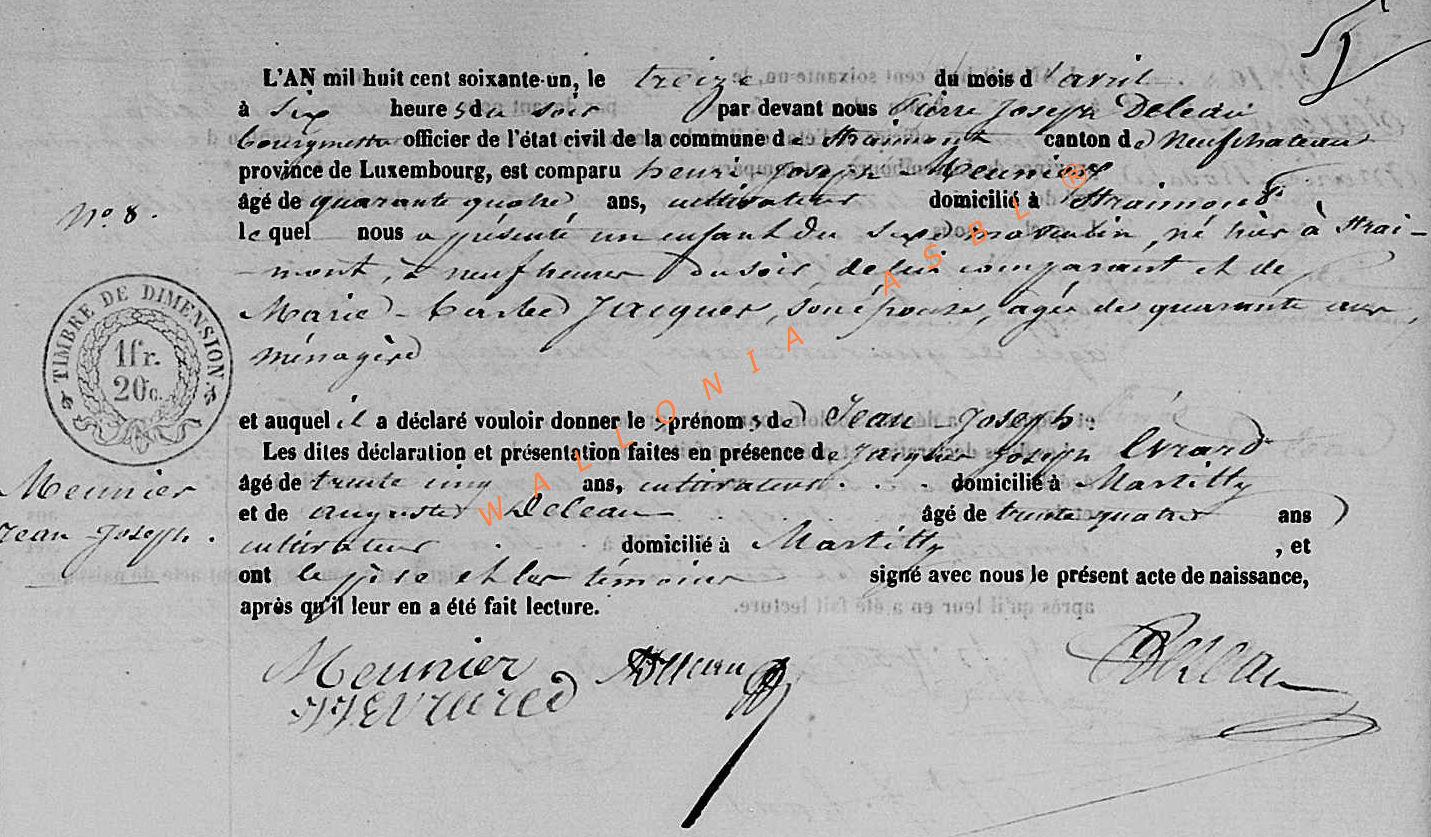 L'AN mil huit cent soixante-un, le treize du mois d'avril
à six heures du soir par devant nous Pierre Joseph Deleau
bourgmestre officier de l'état civil de la commune de Straimont canton de Neufchateau
province de Luxembourg, est comparu henri-Joseph-Meunier
âgé de quarante quatre ans, cultivateur domicilié à Straimont
N° 8.
lequel nous a présenté un enfant du sexe masculin, né hier à Strai-
-mont, à neuf heures du soir, de lui comparant et de
Marie-Barbe Jacques, son épouse, agée de quarante ans,
ménagère
TIMBRE DE DIMENSION.
1fr.
20c.
et auquel il a déclaré vouloir donner les prénoms de Jean-Joseph.
Les dites déclaration et présentation faites en présence de Jacques Joseph Evrard
Meunier
Jean Joseph.
âgé de trente cinq ans, cultivateur domicilié à Martilly
et de auguste Deleau âgé de trente quatre ans
cultivateur domicilié à Martilly, et
ont le père et les témoins signé avec nous le présent acte de naissance,
après qu'il leur en a été fait lecture.
Meunier
Deleau
WALLONIA ASBL ®